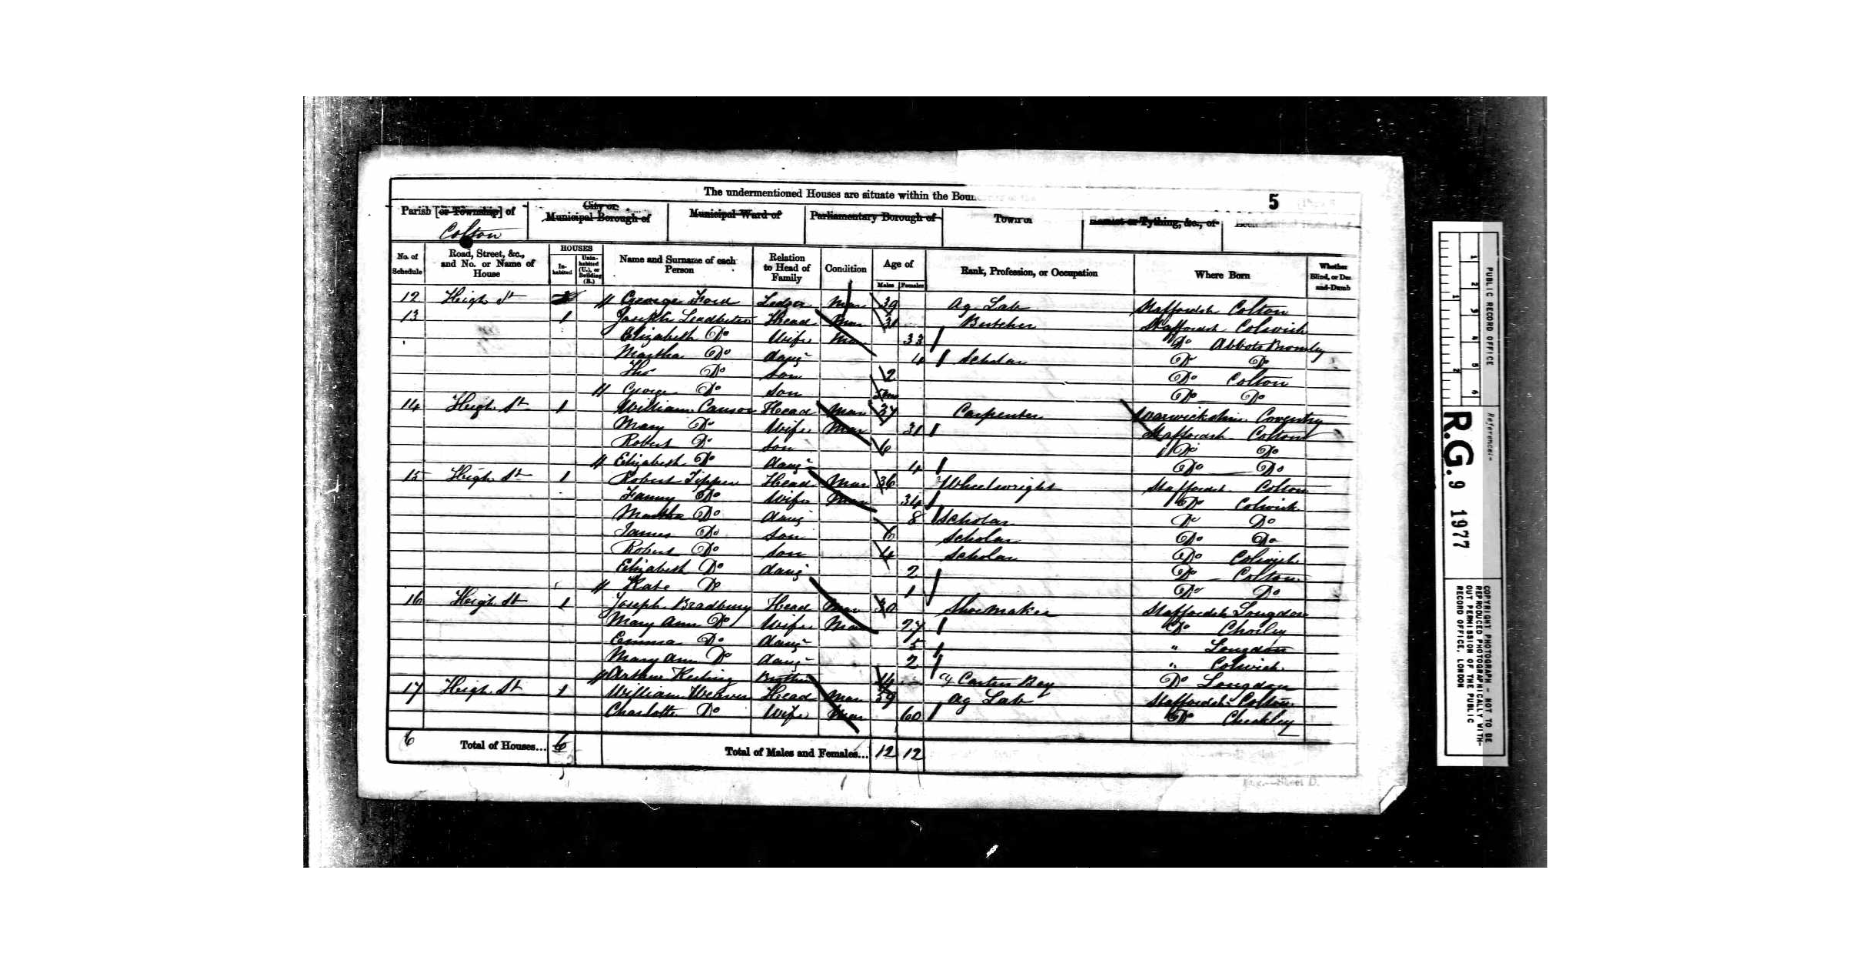 The undermentioned Houses are situate within the
5
Parish [or Township] of
City or Municipal Borough of
Municipal Ward of
Parliamentary Borough of
Town of
Hamlet or Tything, &c., of
Colton
No. of Schedule
Road, Street, &c., and No. or Name of House
HOUSES
In-habited
Unin-habited (U.), or Building (B.)
Name and Surname of each Person
Relation to Head of Family
Condition
Age of
Males
Females
Rank, Profession, or Occupation
Where Born
Whether Blind, or Deaf-and-Dumb
12 High St George Ford Lodger Mar 39 Ag. Lab Staffordsh Colton
13 1 Joseph Leadbeter Head Mar 31 Butcher Staffordsh Colwich
Elizabeth Do Wife Mar 33 Do Abbots Bromley
Martha Do daug 4 Scholar Do Do
Thos Do Son 2 Do Colton
George Do Son Do Do
14 High St 1 William Head Mar 37 Carpenter Warwickshire Coventry
Mary Do Wife Mar 31 Staffordsh Colton
Robert Do Son 6 Do Do
Elizabeth Do daug 4 Do Do
15 High St 1 Robert Tipper Head Mar 36 Wheelwright Staffordsh Colton
Fanny Do Wife Mar 34 Do Colwich
Martha Do daug 8 Scholar Do Do
James Do Son 6 Scholar Do Do
Robert Do Son 4 Scholar Do Colwich
Elizabeth Do daug 2 Do Colton
Kate Do 1 Do Do
16 High St 1 Joseph Bradbury Head Mar 30 Shoemaker Staffordsh Longdon
Mary Ann Do Wife Mar 27 Do Chorley
Emma Do daug 5 " Longdon
Mary Ann Do daug 2 " Colwich
Arthur Keeling Brother 14 Carters Boy Do Longdon
17 High St 1 William Weaver Head Mar 59 Ag Lab Staffordsh Colton
Charlotte Do Wife Mar 60 Do Checkley
6 Total of Houses... 6 Total of Males and Females... 12 12
PUBLIC RECORD OFFICE
Reference:-
R.G. 9 1977
COPYRIGHT PHOTOGRAPH - NOT TO BE
REPRODUCED PHOTOGRAPHICALLY WITH-
OUT PERMISSION OF THE PUBLIC
RECORD OFFICE, LONDON